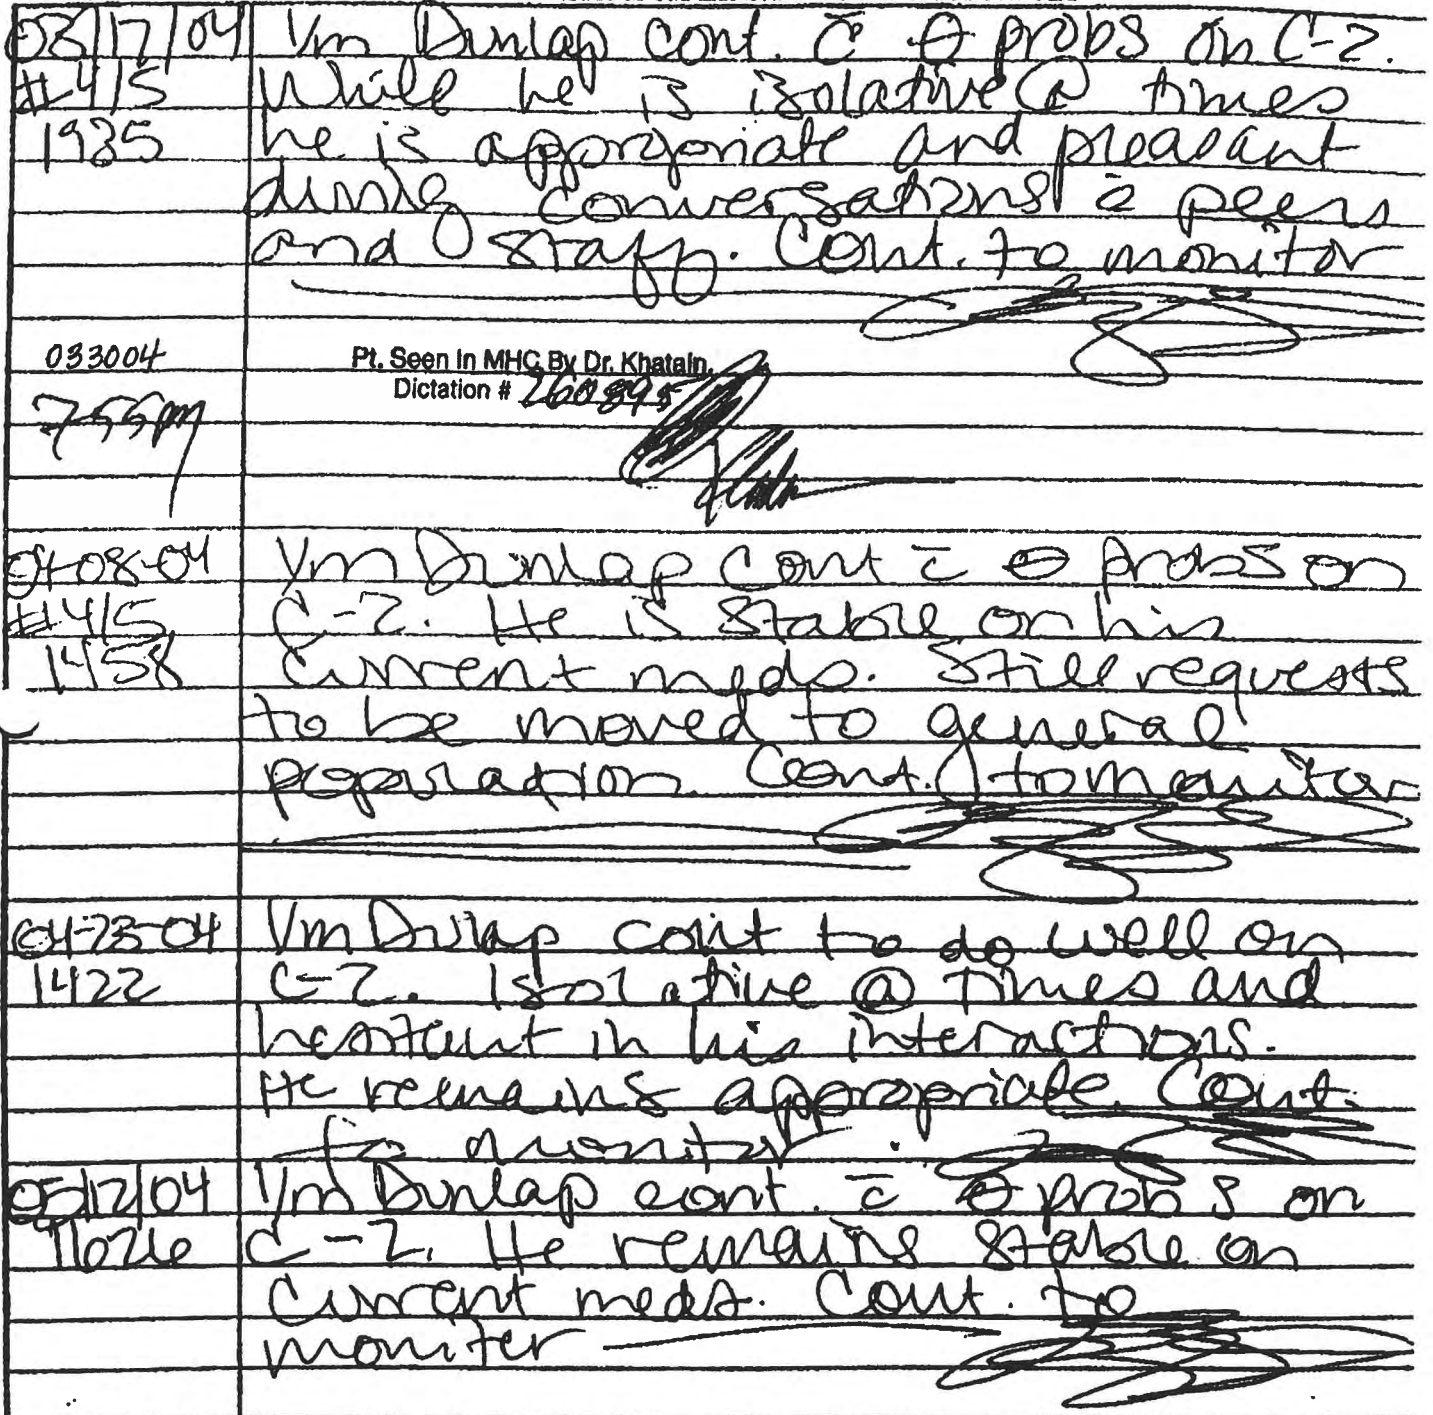 03/17/04 I/m Dunlap cont. c̄ ⊖ probs on C-2.
#415 While he is isolative @ times
1935 he is appropriate and pleasant
during conversations c̄ peers
and staff. Cont. to monitor
033004 Pt. Seen In MHC By Dr. Khatain.
Dictation # 260895
755pm
04-08-04 I/m Dunlap cont c̄ ⊖ probs on
#415 C-2. He is stable on his
1458 current meds. Still requests
to be moved to general
population. Cont. to monitor
04-23-04 I/m Dunlap cont to do well on
1422 C-2. Isolative @ times and
hesitant in his interactions.
He remains appropriate. Cont.
to monitor.
05/12/04 I/m Dunlap cont. c̄ ⊖ probs on
1626 C-2. He remains stable on
current meds. Cont. to
moniter